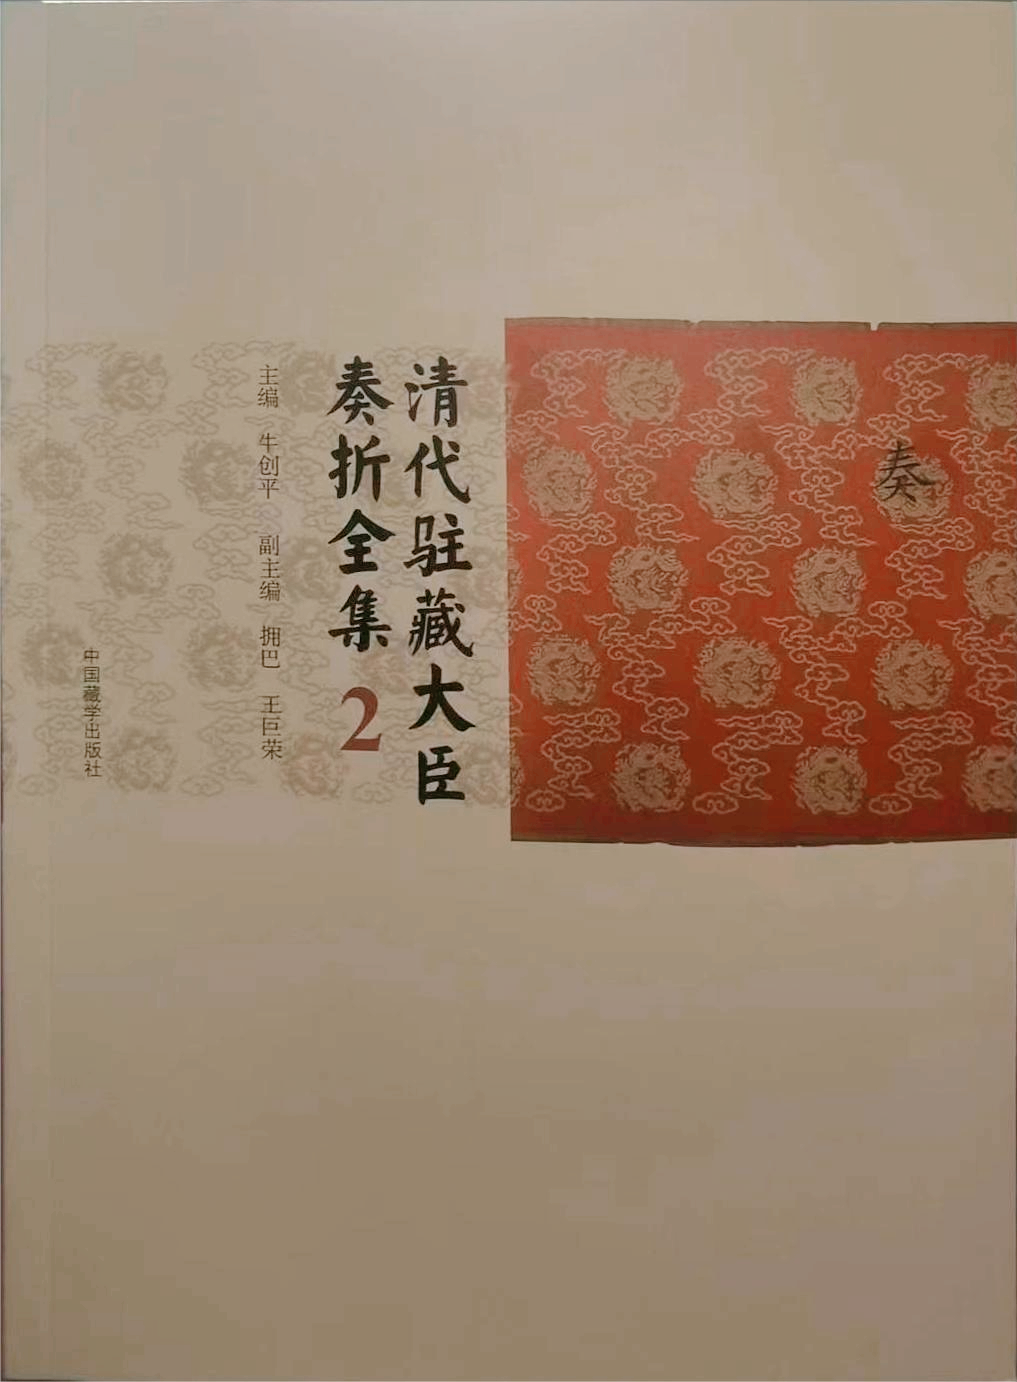 奏
清代驻藏大臣
奏折全集 2
主编 牛创平 副主编 拥巴 王巨荣
中国藏学出版社